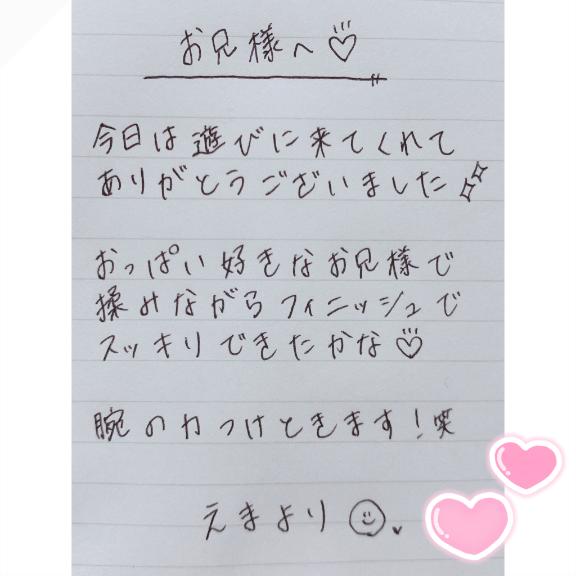 お兄様へ♡
今日は遊びに来てくれて
ありがとうございました
おっぱい好きなお兄様で
揉みながらフィニッシュで
スッキリできたかな♡
腕のわつけときます！笑
えまより